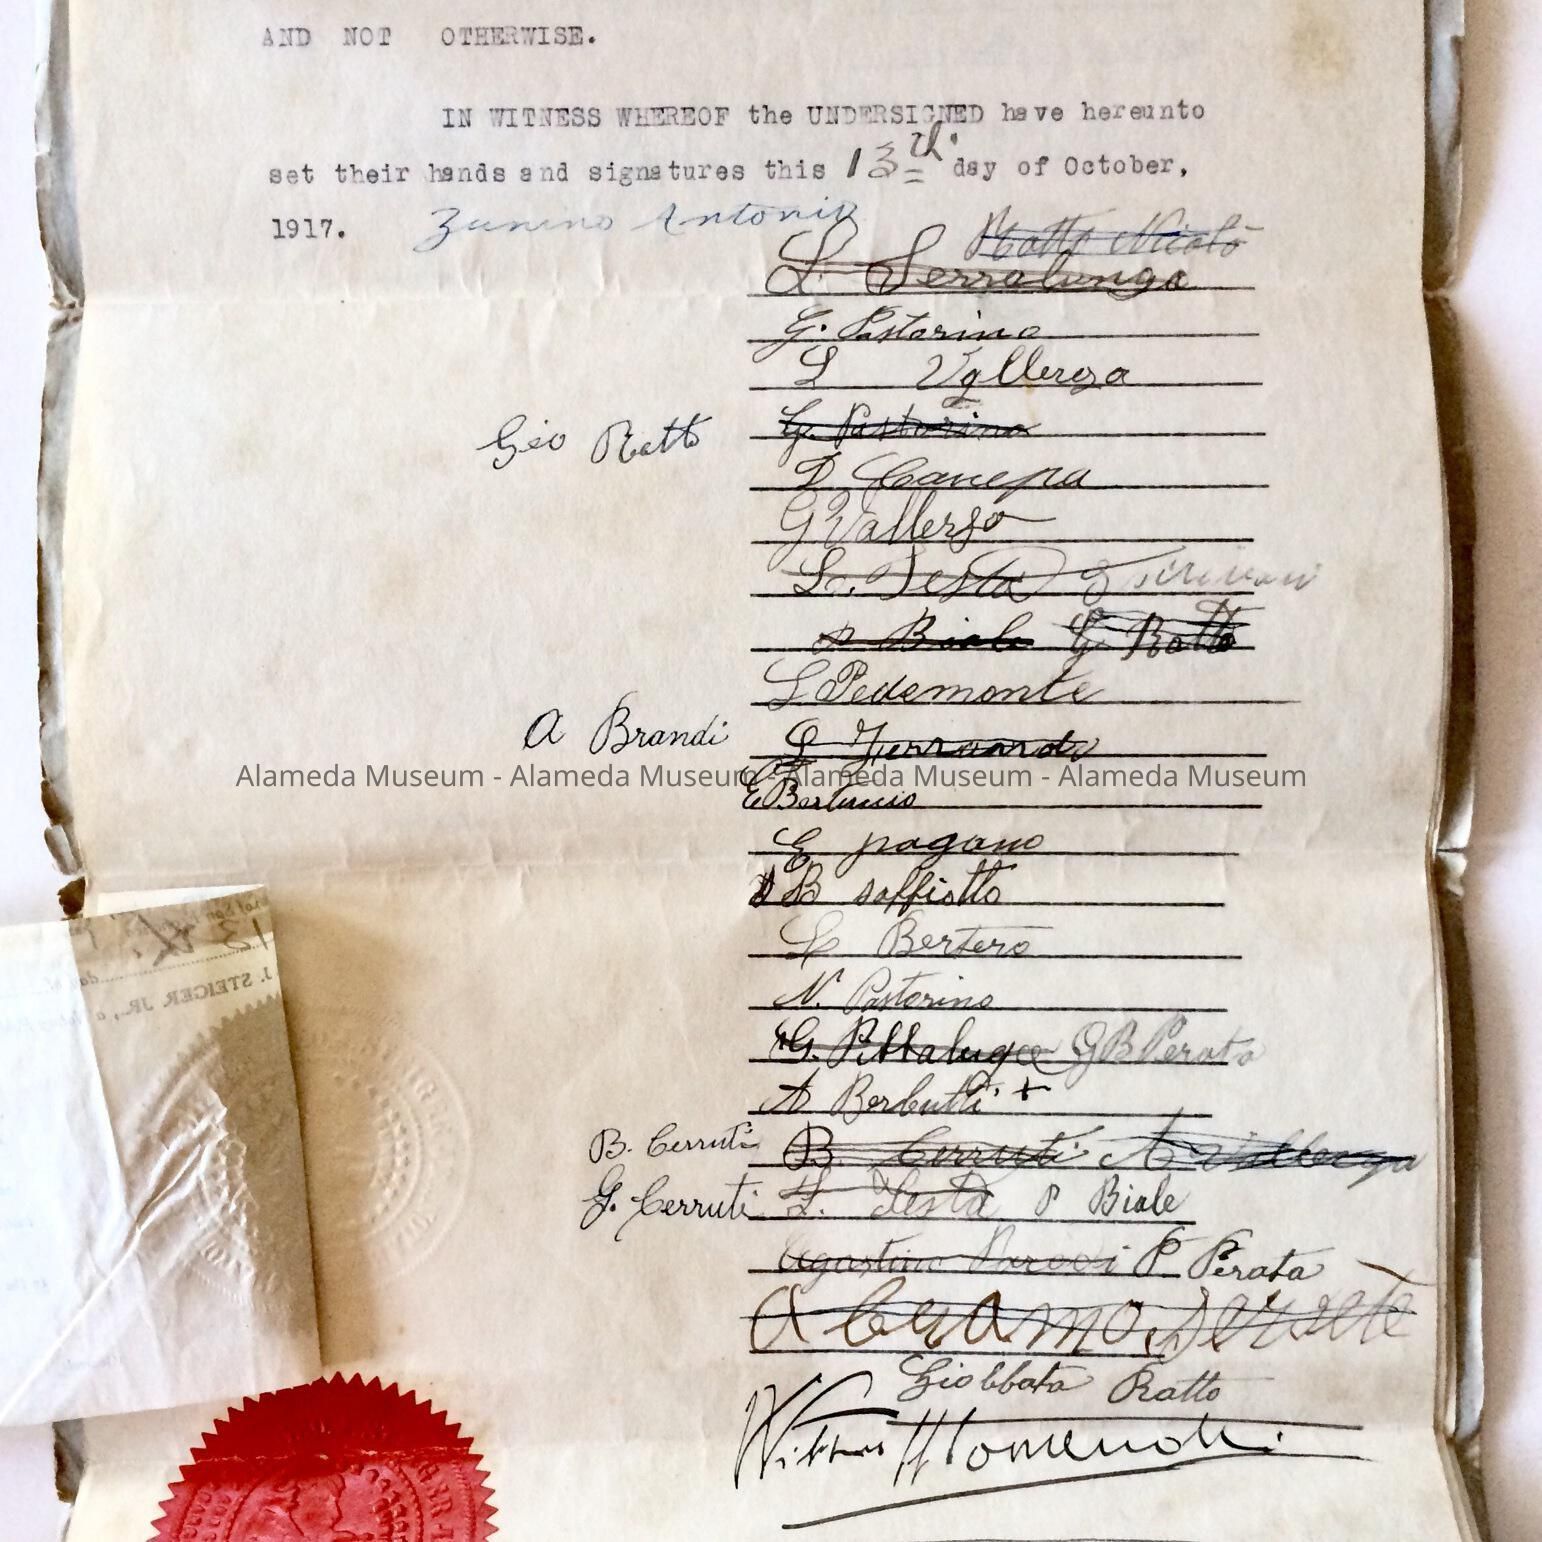 AND NOT OTHERWISE.
IN WITNESS WHEREOF the UNDERSIGNED have hereunto
set their hands and signatures this 13th. day of October,
1917. Zunino Antonio
Ratto Nicolò
L. Serralunga
G. Pastorino
L Vallerga
G. Pastorino
Geo Ratto
D Canepa
G Vallerga
L. Testa
P Biale G Ratto
L Pedemonte
A Brandi
Alameda Museum - Alameda Museum - Alameda Museum - Alameda Museum
E Bertuccio
E pagano
B saffiotto
L Bertero
N. Pastorino
G. Pittaluga GB Perata
A Berbutti +
B. Cerruti B. Cerruti A Vallerga
G. Cerruti L. Testa P Biale
Agostino Parodi P Perata
Giobbata Ratto
13
J. STEIGER JR., a